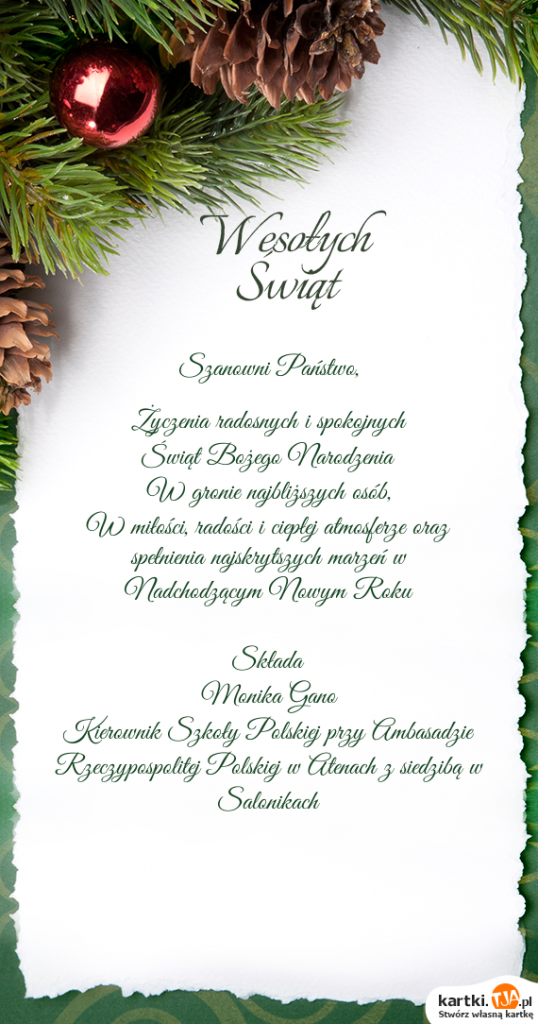 Wesołych
Świąt
Szanowni Państwo,
Życzenia radosnych i spokojnych
Świąt Bożego Narodzenia
W gronie najbliższych osób,
W miłości, radości i ciepłej atmosferze oraz
spełnienia najskrytszych marzeń w
Nadchodzącym Nowym Roku
Składa
Monika Gano
Kierownik Szkoły Polskiej przy Ambasadzie
Rzeczypospolitej Polskiej w Atenach z siedzibą w
Salonikach
kartki.TJA.pl
Stwórz własną kartkę